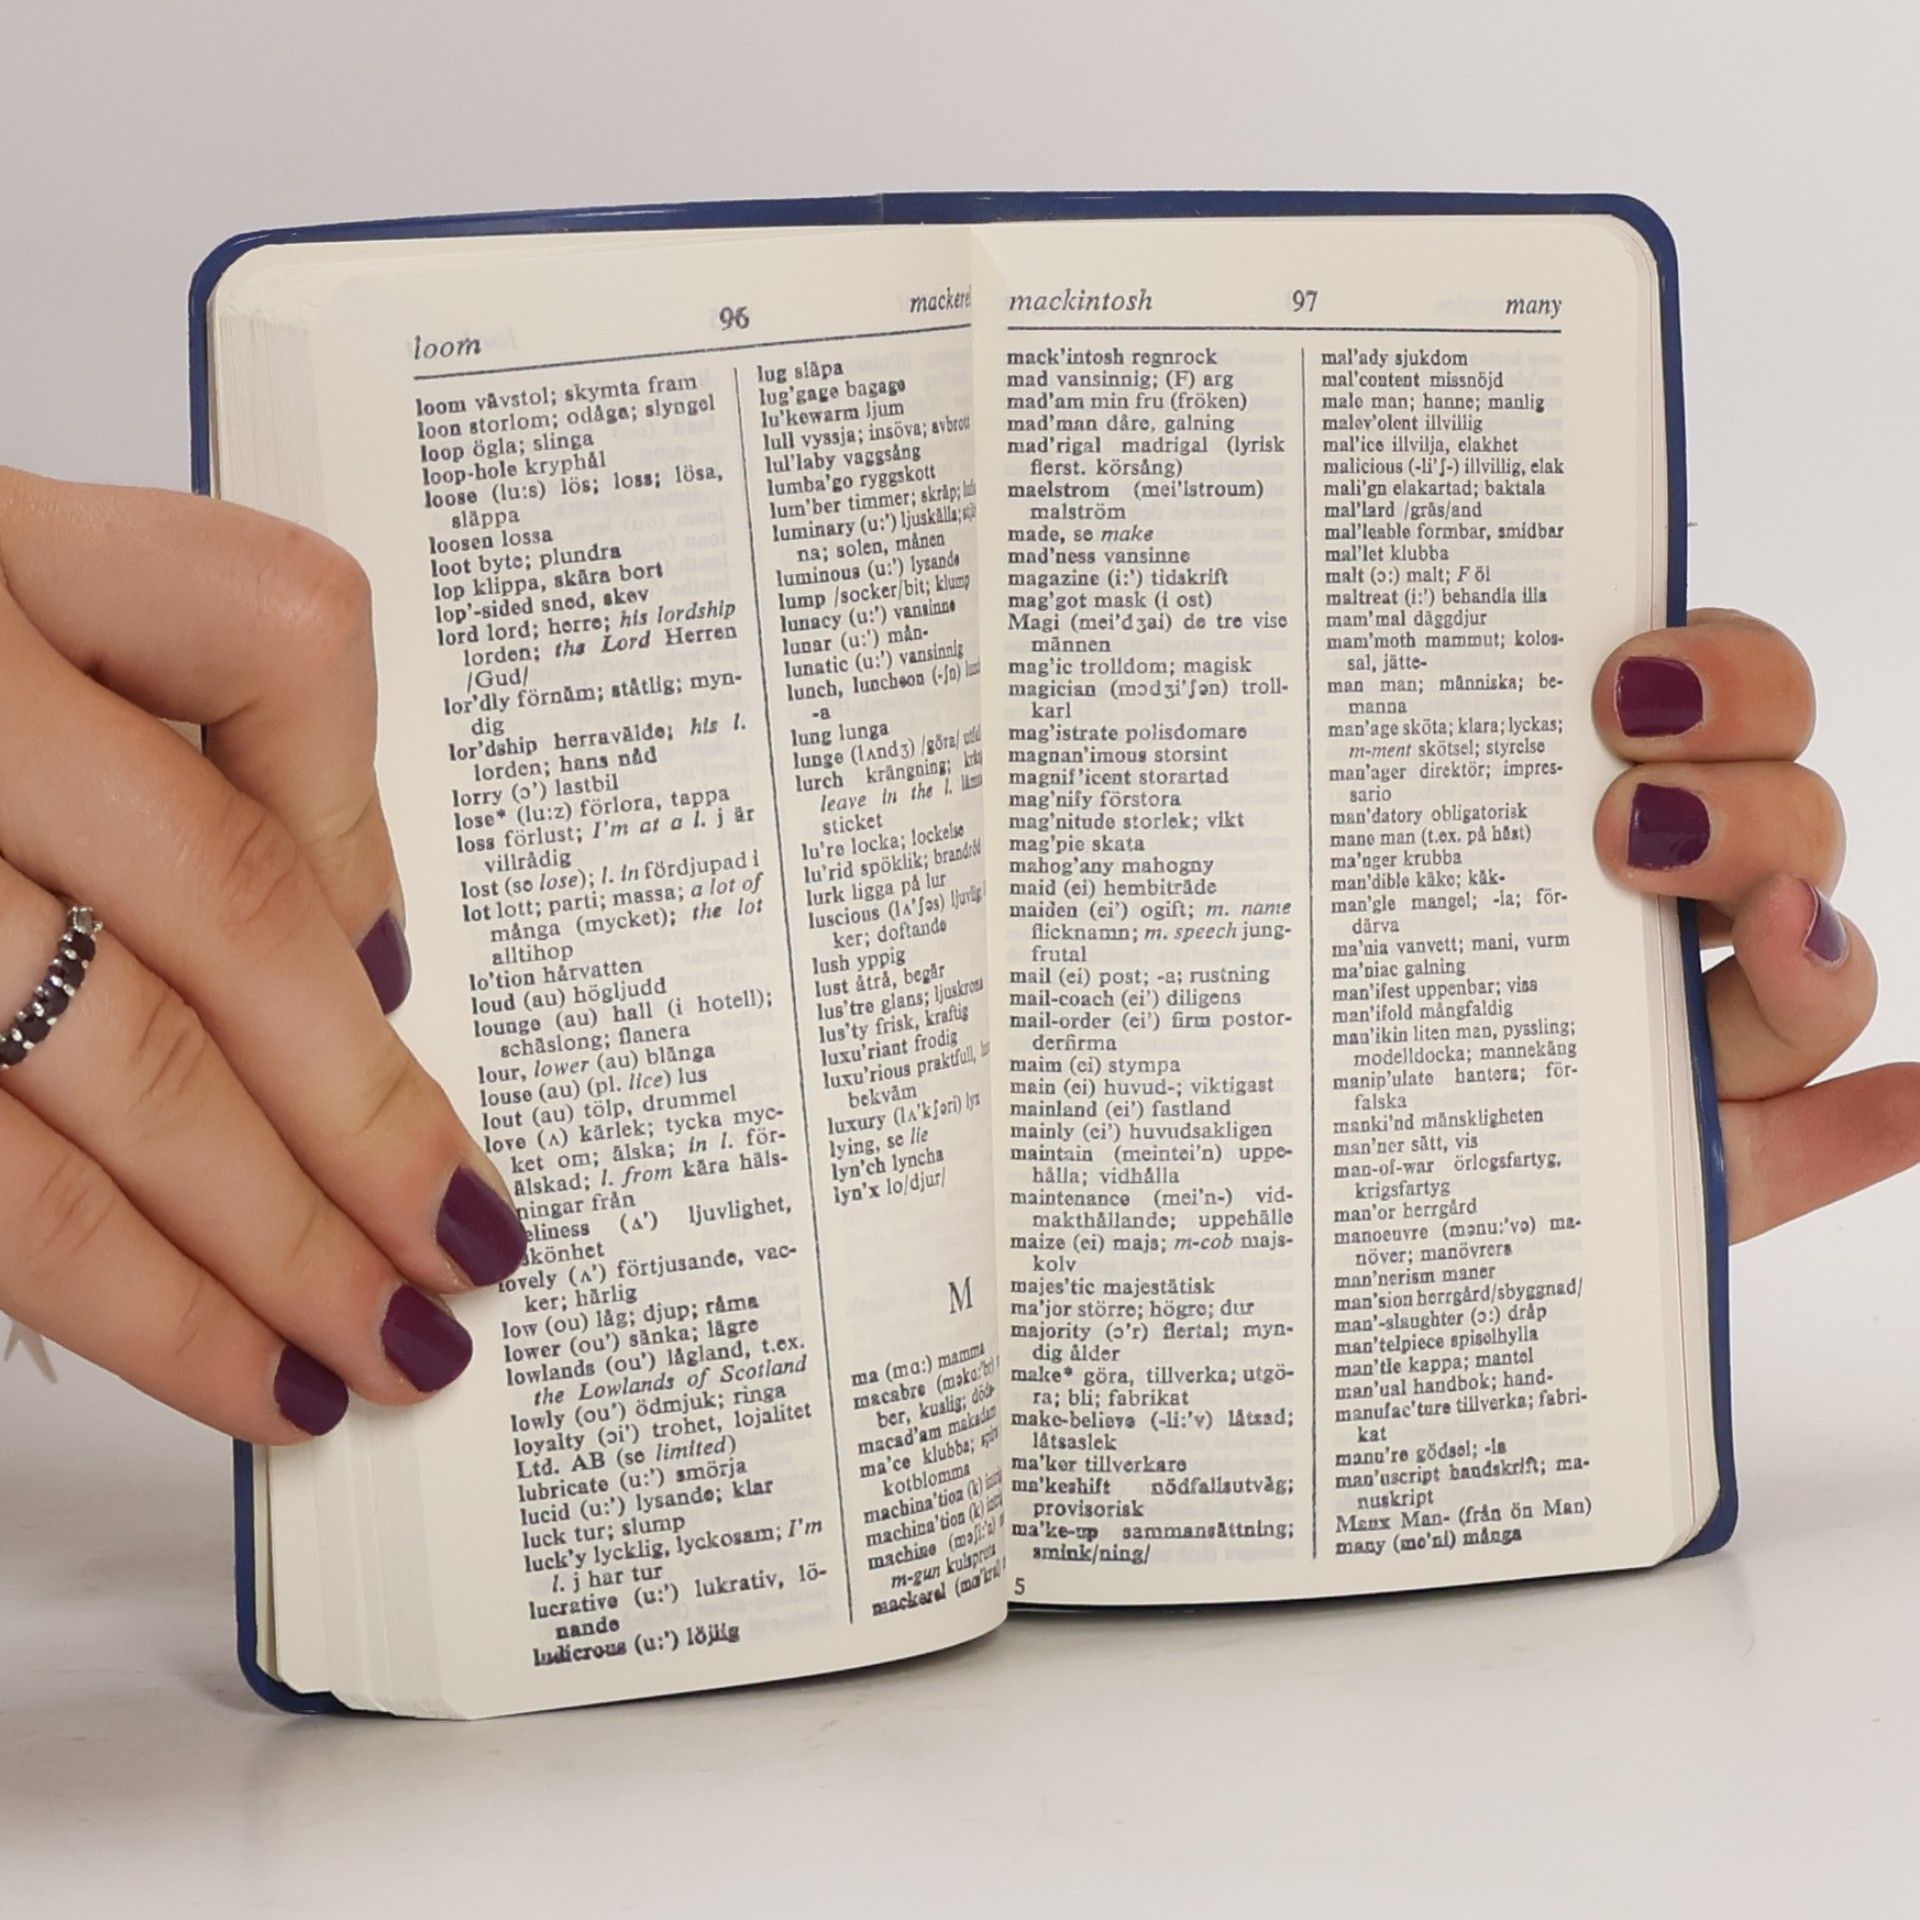 loom 96
loom vävstol; skymta fram
loon storlom; odåga; slyngel
loop ögla; slinga
loop-hole kryphål
loose (lu:s) lös; loss; lösa,
släppa
loosen lossa
loot byte; plundra
lop klippa, skära bort
lop'-sided sned, skev
lord lord; herre; his lordship
lorden; the Lord Herren
/Gud/
lor'dly förnäm; ståtlig; myn-
dig
lor'dship herravälde; his l.
lorden; hans nåd
lorry (ɔ') lastbil
lose* (lu:z) förlora, tappa
loss förlust; I'm at a l. j är
villrådig
lost (se lose); l. in fördjupad i
lot lott; parti; massa; a lot of
många (mycket); the lot
alltihop
lo'tion hårvatten
loud (au) högljudd
lounge (au) hall (i hotell);
schäslong; flanera
lour, lower (au) blänga
louse (au) (pl. lice) lus
lout (au) tölp, drummel
love (ʌ) kärlek; tycka myc-
ket om; älska; in l. för-
älskad; l. from kära häls-
ningar från
(ʌ') ljuvlighet,
skönhet
lovely (ʌ') förtjusande, vac-
ker; härlig
low (ou) låg; djup; råma
lower (ou') sänka; lägre
lowlands (ou') lågland, t.ex.
the Lowlands of Scotland
lowly (ou') ödmjuk; ringa
loyalty (ɔi') trohet, lojalitet
Ltd. AB (se limited)
lubricate (u:') smörja
lucid (u:') lysande; klar
luck tur; slump
luck'y lycklig, lyckosam; I'm
l. j har tur
lucrative (u:') lukrativ, lö-
nande
ludicrous (u:') löjlig
lug släpa
lug'gage bagage
lu'kewarm ljum
lull vyssja; insöva; avbrott
lul'laby vaggsång
lumba'go ryggskott
lum'ber timmer; skräp;
luminary (u:') ljuskälla;
na; solen, månen
luminous (u:') lysande
lump /socker/bit; klump
lunacy (u:') vansinne
lunar (u:') mån-
lunatic (u:') vansinnig
lunch, luncheon (-ʃn)
-a
lung lunga
lunge (lʌndʒ) /göra/
lurch krängning;
leave in the l.
sticket
lu're locka; lockelse
lu'rid spöklik; brandröd
lurk ligga på lur
luscious (lʌ'ʃəs)
ker; doftande
lush yppig
lust åtrå, begär
lus'tre glans; ljuskrona
lus'ty frisk, kraftig
luxu'riant frodig
luxu'rious praktfull,
bekväm
luxury (lʌ'kʃəri) lyx
lying, se lie
lyn'ch lyncha
lyn'x lo/djur/
M
ma (mɑ:) mamma
macabre
ber, kuslig;
macad'am makadam
ma'ce klubba;
kotblomma
machina'tion (k)
machina'tion (k)
machine
m-gun kulspruta
mackerel
mackintosh 97 many
mack'intosh regnrock
mad vansinnig; (F) arg
mad'am min fru (fröken)
mad'man dåre, galning
mad'rigal madrigal (lyrisk
flerst. körsång)
maelstrom (mei'lstroum)
malström
made, se make
mad'ness vansinne
magazine (i:') tidskrift
mag'got mask (i ost)
Magi (mei'dʒai) de tre vise
männen
mag'ic trolldom; magisk
magician (mədʒi'ʃən) troll-
karl
mag'istrate polisdomare
magnan'imous storsint
magnif'icent storartad
mag'nify förstora
mag'nitude storlek; vikt
mag'pie skata
mahog'any mahogny
maid (ei) hembiträde
maiden (ei') ogift; m. name
flicknamn; m. speech jung-
frutal
mail (ei) post; -a; rustning
mail-coach (ei') diligens
mail-order (ei') firm postor-
derfirma
maim (ei) stympa
main (ei) huvud-; viktigast
mainland (ei') fastland
mainly (ei') huvudsakligen
maintain (meintei'n) uppe-
hålla; vidhålla
maintenance (mei'n-) vid-
makthållande; uppehälle
maize (ei) majs; m-cob majs-
kolv
majes'tic majestätisk
ma'jor större; högre; dur
majority (ɔ'r) flertal; myn-
dig ålder
make* göra, tillverka; utgö-
ra; bli; fabrikat
make-believe (-li:'v) låtsad;
låtsaslek
ma'ker tillverkare
ma'keshift nödfallsutväg;
provisorisk
ma'ke-up sammansättning;
smink/ning/
5
mal'ady sjukdom
mal'content missnöjd
male man; hanne; manlig
malev'olent illvillig
mal'ice illvilja, elakhet
malicious (-li'ʃ-) illvillig, elak
mali'gn elakartad; baktala
mal'lard /gräs/and
mal'leable formbar, smidbar
mal'let klubba
malt (ɔ:) malt; F öl
maltreat (i:') behandla illa
mam'mal däggdjur
mam'moth mammut; kolos-
sal, jätte-
man man; människa; be-
manna
man'age sköta; klara; lyckas;
m-ment skötsel; styrelse
man'ager direktör; impres-
sario
man'datory obligatorisk
mane man (t.ex. på häst)
ma'nger krubba
man'dible käke; käk-
man'gle mangel; -la; för-
därva
ma'nia vanvett; mani, vurm
ma'niac galning
man'ifest uppenbar; visa
man'ifold mångfaldig
man'ikin liten man, pyssling;
modelldocka; mannekäng
manip'ulate hantera; för-
falska
manki'nd mänskligheten
man'ner sätt, vis
man-of-war örlogsfartyg,
krigsfartyg
man'or herrgård
manoeuvre (mənu:'və) ma-
növer; manövrera
man'nerism maner
man'sion herrgård/sbyggnad/
man'-slaughter (ɔ:) dråp
man'telpiece spiselhylla
man'tle kappa; mantel
man'ual handbok; hand-
manufac'ture tillverka; fabri-
kat
manu're gödsel; -la
man'uscript handskrift; ma-
nuskript
Manx Man- (från ön Man)
many (me'ni) många